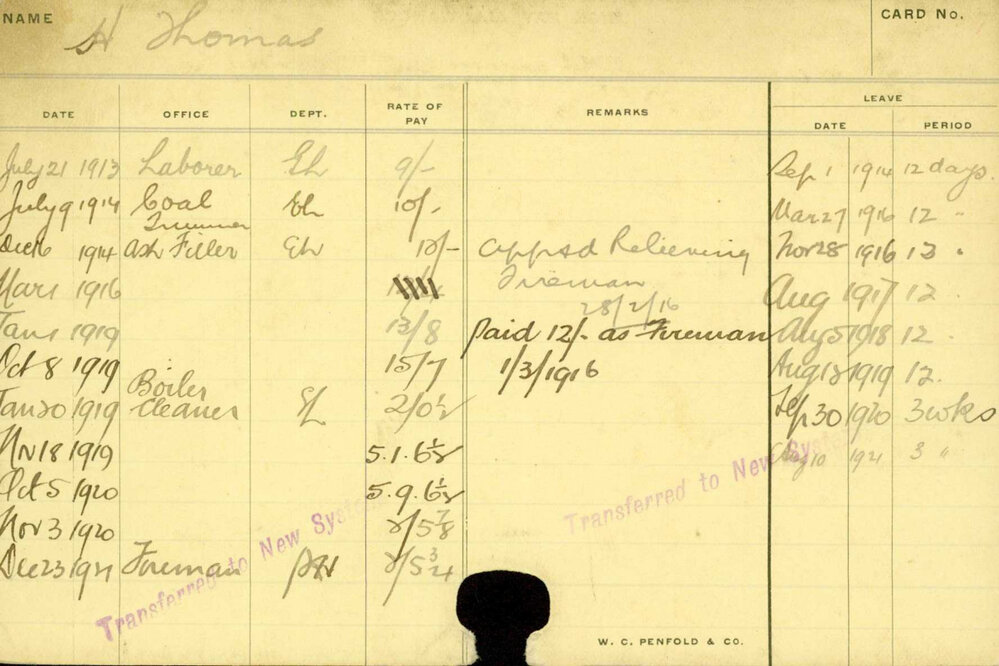 NAME
H Thomas
CARD No.
DATE OFFICE DEPT. RATE OF PAY REMARKS LEAVE
DATE PERIOD
July 21 1913 Laborer 9/- Sep 1 1914 12 days.
July 9 1914 Coal Trimmer 10/- Mar 27 1916 12 "
Dec 6 1914 Ash Filler 10/- appsd Relieving Nov 28 1916 13 "
Mar 1 1916 Fireman Aug 1917 12
28/2/16
Jan 1 1919 13/8 Paid 12/- as Fireman Aug 5 1918 12
Oct 8 1919 15/7 1/3/1916 Aug 18 1919 12.
Boiler
Jan 20 1919 Cleaner 2/0½ Sep 30 1920 3 wks
Nv 18 1919 5.1.6½
Aug 10 1921 3 "
Oct 5 1920 5.9.6½
Nov 3 1920 2/5⅞
Dec 23 1921 Fireman 2/5¾
Transferred to New System
Transferred to New System
W. C. PENFOLD & CO.